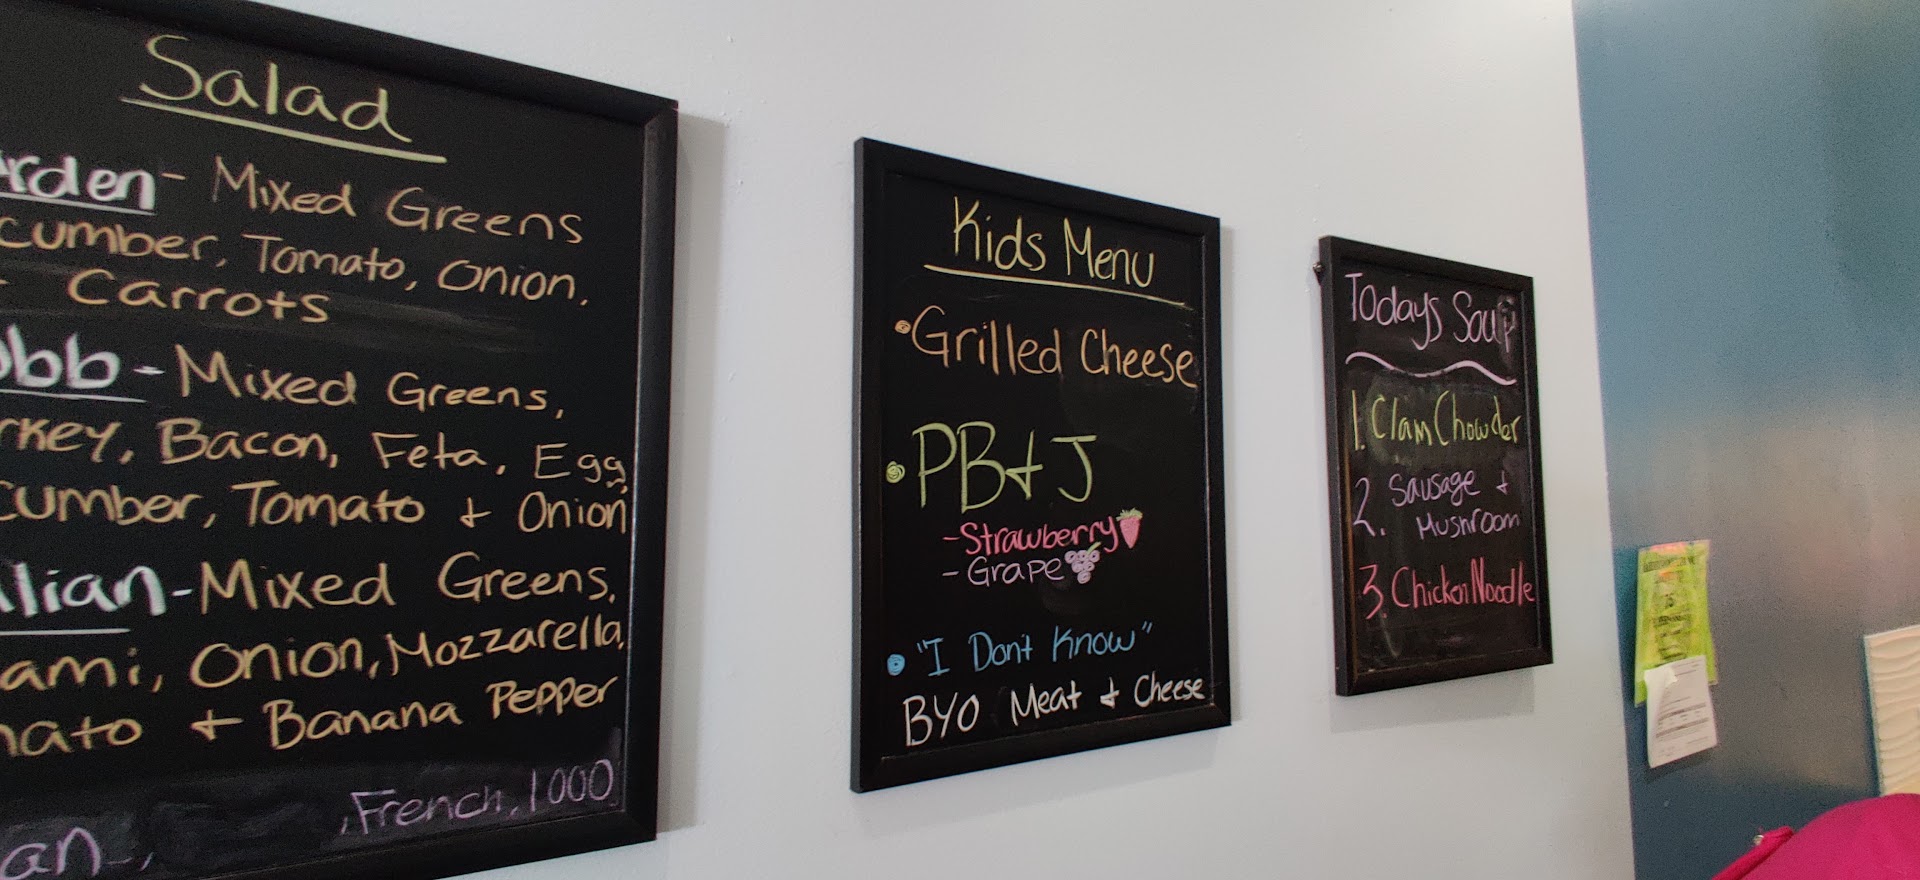 Salad
rden - Mixed Greens
cumber, Tomato, Onion,
+ Carrots
obb - Mixed Greens,
rkey, Bacon, Feta, Egg,
cumber, Tomato + Onion
lian - Mixed Greens,
ami, Onion, Mozzarella,
mato + Banana Pepper
, French, 1000
an,
Kids Menu
• Grilled Cheese
• PB+J
- Strawberry
- Grape
• "I Don't Know"
BYO Meat + Cheese
Todays Soup
1. Clam Chowder
2. Sausage +
Mushroom
3. Chicken Noodle